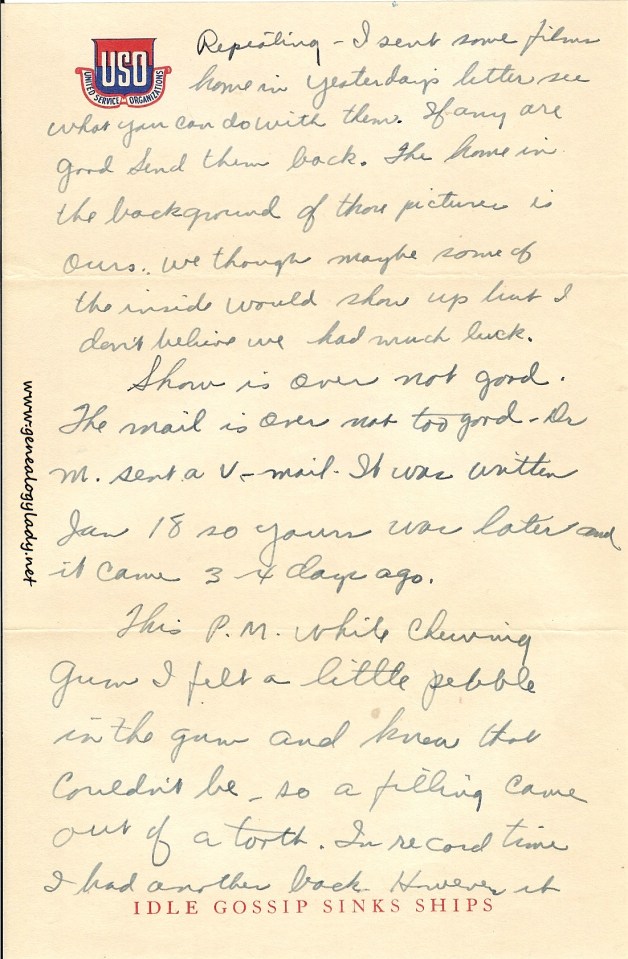 USO
UNITED SERVICE ORGANIZATIONS
Repeating - I sent some films
home in yesterday's letter see
what you can do with them. If any are
good send them back. The home in
the background of those pictures is
ours. We though maybe some of
the inside would show up but I
don't believe we had much luck.
Show is over not good.
The mail is over not too good - Dr
M. sent a V-mail - It was written
Jan 18 so yours was later and
it came 3 4 days ago.
This P.M. while chewing
gum I felt a little pebble
in the gum and knew that
couldn't be - so a filling came
out of a tooth. In record time
I had another back. However it
IDLE GOSSIP SINKS SHIPS
www.genealogylady.net